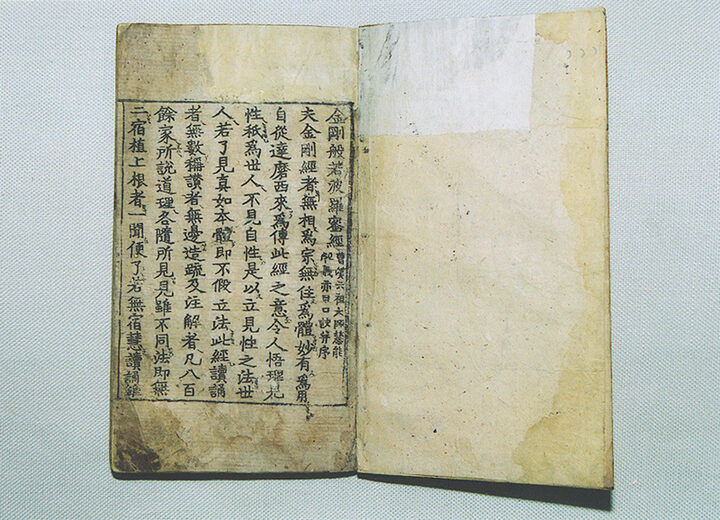 金剛般若波羅蜜經
曹溪六祖大師慧能
解義亦曰口訣并序
夫金剛經者無相爲宗無住爲體妙有爲用
自從達磨西來爲傳此經之意令人悟理見
性秖爲世人不見自性是以立見性之法世
人若了見真如本體即不假立法此經讀誦
者無數稱讃者無邊造疏及注解者凡八百
餘家所說道理各隨所見見雖不同法即無
二宿植上根者一聞便了若無宿慧讀誦雖